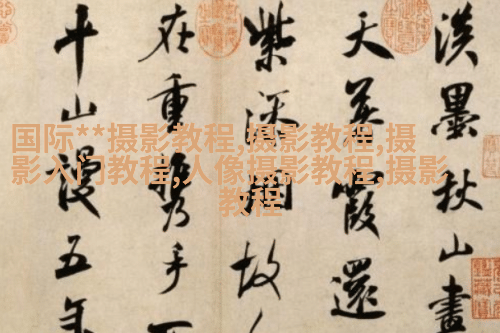 淡墨秋山畫
天暮霞還
紫添烟故
在重攜手
平山漫五年
国际**摄影教程,摄影教程,摄
影入门教程,人像摄影教程,摄影
教程